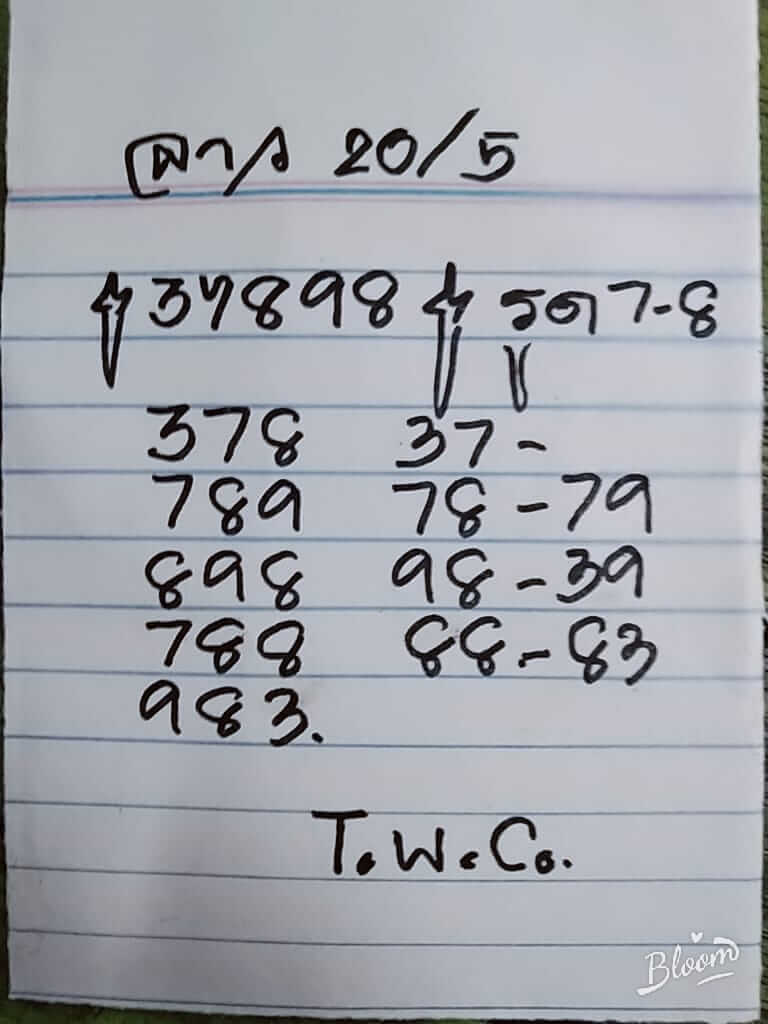 ลาว 20/5
37898 รูด 7-8
378 37-
789 78-79
898 98-39
788 88-83
983.
T.W.Co.
Bloom